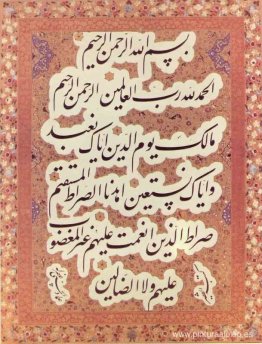 بسم الله الرحمن الرحیم
الحمد لله رب العالمین الرحمن الرحیم
مالک یوم الدین ایاک نعبد
و ایاک نستعین اهدنا الصراط المستقیم
صراط الذین انعمت علیهم غیر المغضوب
علیهم ولا الضالین
www.pinturaalban.es